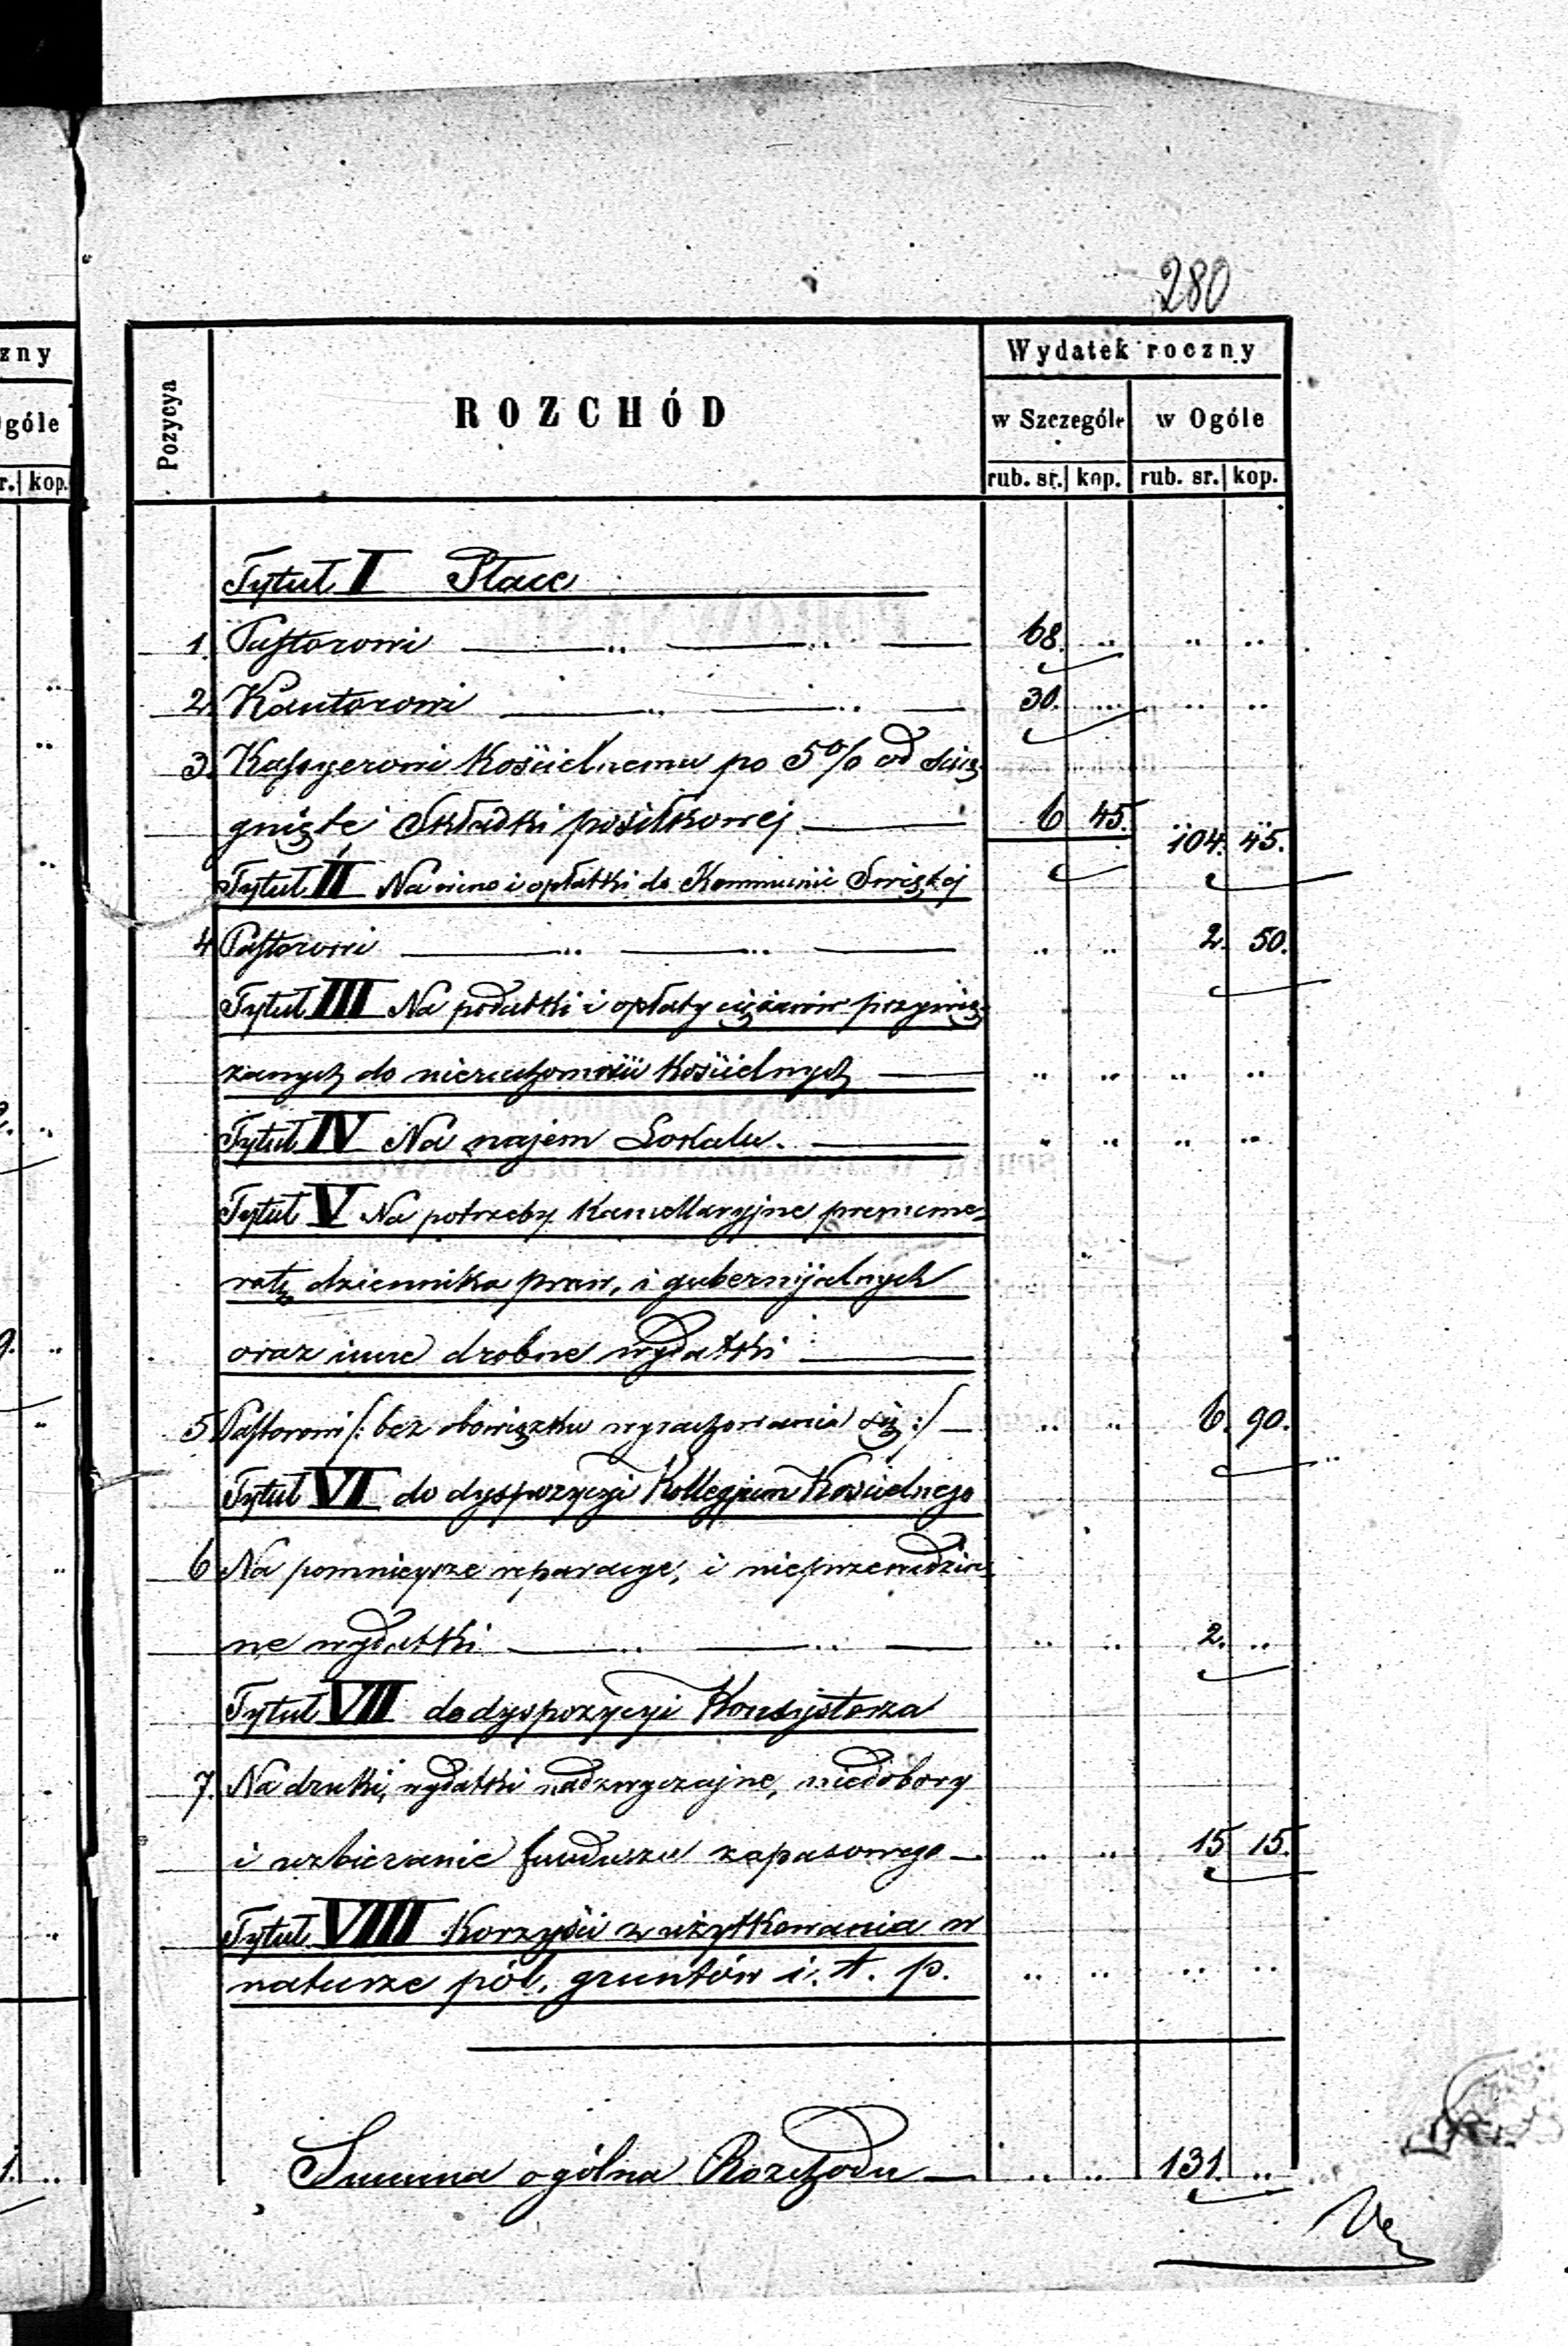 280
zny
Wydatek roczny
Pozycya
ROZCHÓD
w Szczególe
w Ogóle
góle
rub. sr. kop. rub. sr. kop.
r. kop.
Tytuł I Płace
1. Pastorowi 68. .. .. ..
2. Kantorowi 30. .. .. ..
3. Kassyerowi Kościelnemu po 5% od ścią-
gniętej Składki posiłkowej 6 45. 104. 45.
Tytuł II Na wino i opłatki do Kommunii Swiętej
4 Pastorowi .. .. 2. 50.
Tytuł III Na podatki i opłaty ciężarów przywią-
zanych do nieruchomości Kościelnych .. .. .. ..
Tytuł IV Na najem Lokalu. .. .. .. ..
Tytuł V Na potrzeby Kancellaryjne prenume-
ratę dziennika praw, i gubernijalnych
oraz inne drobne wydatki
5 Pastorowi /: bez obowiązku wyrachowania się :/ .. .. 6. 90.
Tytuł VI do dyspozycyi Kollegjum Kościelnego
6 Na pomniejsze reparacye, i nieprzewidzia-
ne wydatki .. .. 2. ..
Tytuł VII do dyspozycyi Konsystorza
7. Na druki, wydatki nadzwyczajne, niedobory
i uzbieranie funduszu zapasowego .. .. 15 15.
Tytuł VIII Korzyści z użytkowania w
naturze pól, gruntów i. t. p. .. .. .. ..
Summa ogólna Rozchodu .. .. 131. ..